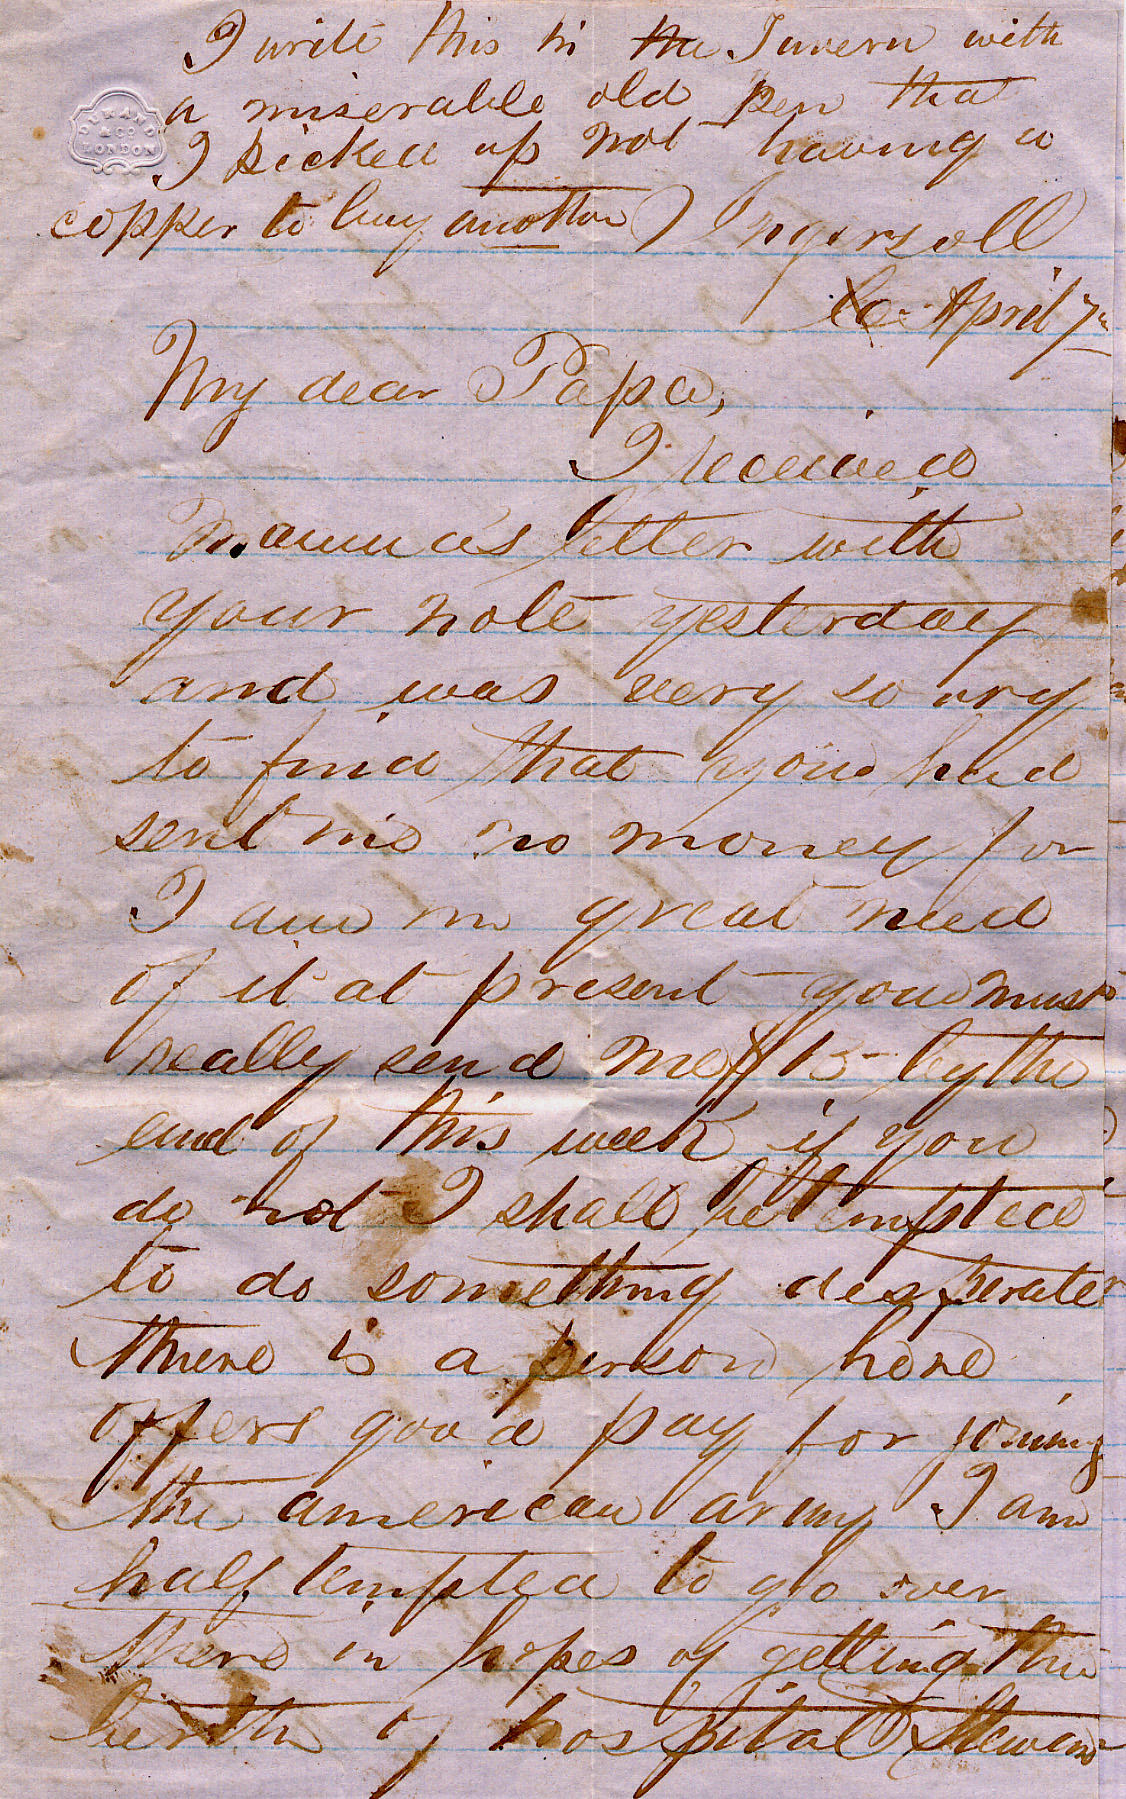 I write this in the Tavern with
a miserable old pen that
I picked up not having a
copper to buy another) Ingersoll
DURAND
& CO
LONDON
April 7th
My dear Papa,
I received
Mamma's letter with
your note yesterday
and was very sorry
to find that you had
sent me no money for
I am in great need
of it at present you must
really send me $15 by the
end of this week if you
do not I shall be tempted
to do something desperate
there is a person here
offers good pay for joining
the american army I am
half tempted to go over
there in hopes of getting the
berth of hospital Steward